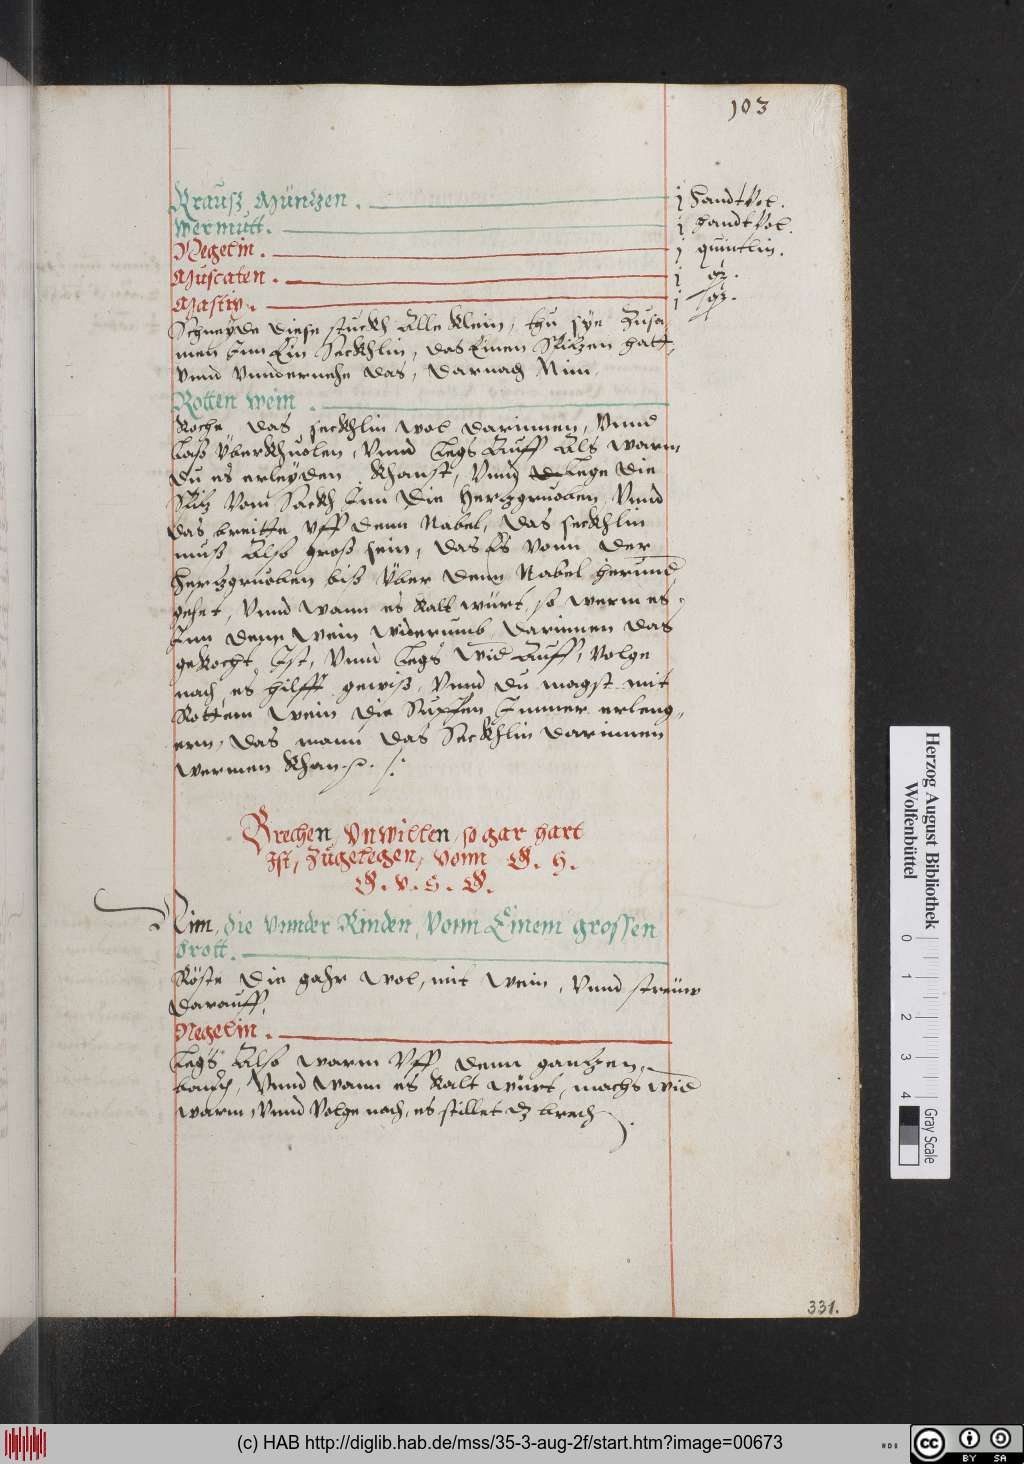 103
Krausz Müntzen. j Handtvol.
Wermutt. j handtvol.
Negelin. j quintlin.
Muscaten. j
Mastix. j
Schneyde diese stuckh Alle klein, thu sye Zusa
men Inn Ein Seckhlin, das Einen Spitzen hatt,
Vnnd Vndernehe das, darnach Nim
Rotten Wein.
Koche das seckhlin wol darinnen, Vnnd
laß überkhuolen, Vnnd legs Auff Als warm
du es erleyden khanst, Vnnd lege die
Spitz vom Sackh Inn die Hertzgruoben Vnnd
das breitte vff denn Nabel, das seckhlin
muß Also groß sein, das Es vonn der
Hertzgruoben biß über denn Nabel herumb
gehet, Vnnd wann es kalt würt, so werm es
Inn denn Wein widerumb, darinnen das
gekocht Ist, Vnnd legs Wid Auff, volge
nach es hilfft gewiß, Vnnd du magst mit
Rottem Wein die Suppen Immer erleng,
ern, das mann das Seckhlin darinnen
wermen khan.
Brechen, Vnwillen, so gar hart
Ist, Zugelegen, vonn G. H.
G. v. H. G.
Nim, die vnnder Rinden, Vonn Einem grossen
brott.
Röste die gahr wol, mit Wein, Vnnd streüw
darauff,
Negelin.
Legs Also warm Vff denn gantzen
bauch, Vnnd wann es kalt würt, machs wid
warm, Vnnd Volge nach, es stillet dz brech
331.
Herzog August Bibliothek
Wolfenbüttel
0 1 2 3 4
Gray Scale
(c) HAB http://diglib.hab.de/mss/35-3-aug-2f/start.htm?image=00673
cc BY SA